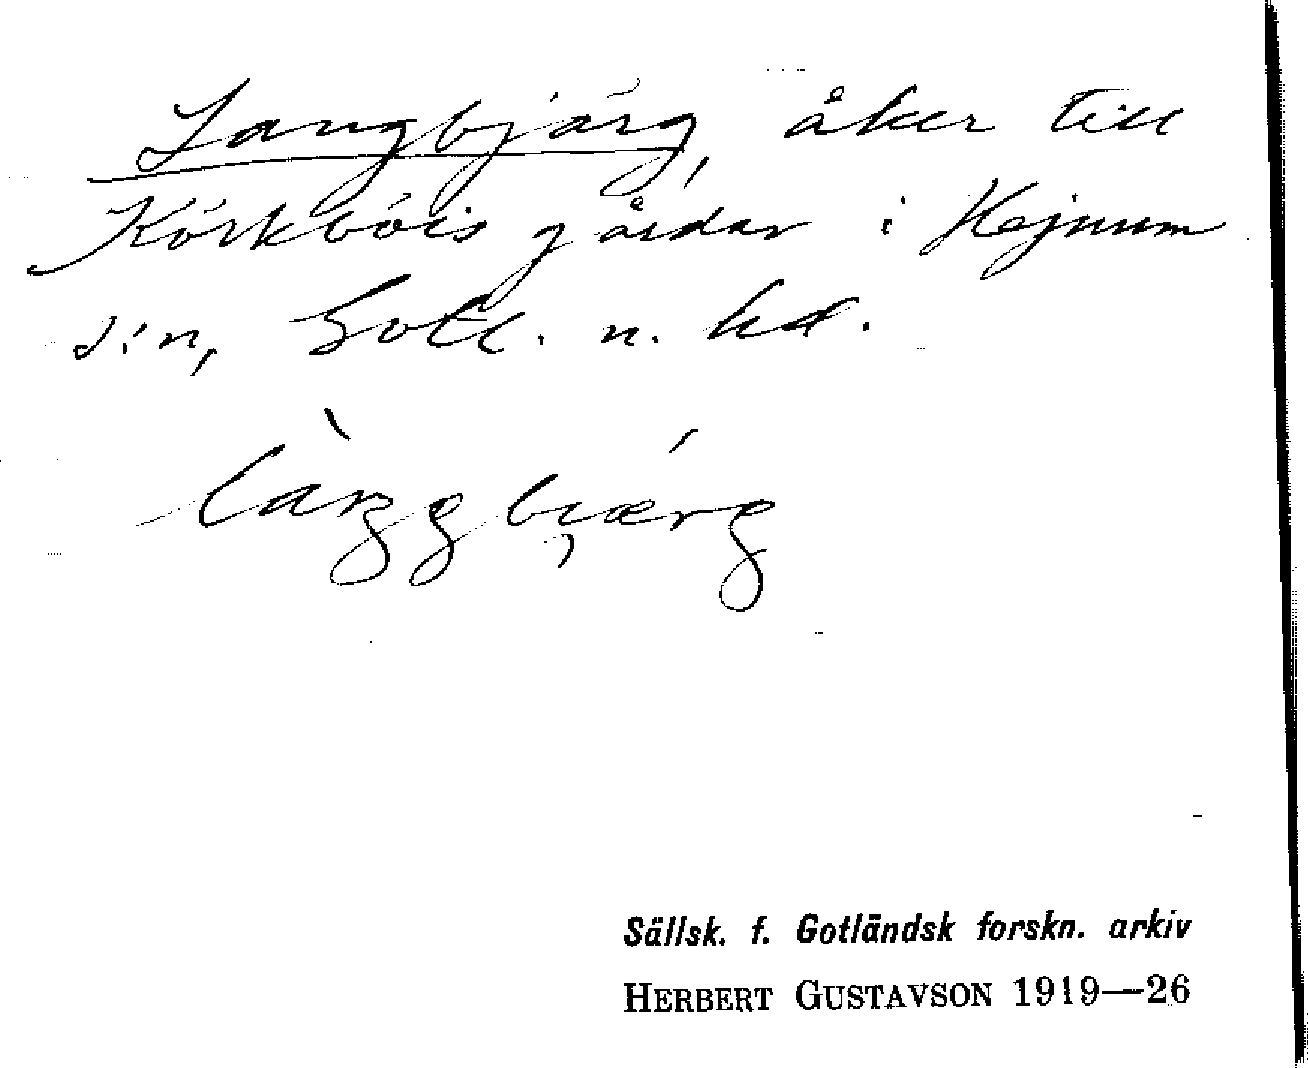 Langbjärg, åker till
Körkböis gårdar i Hejnum
s:n, Gotl. n. hd.
làŋgbjærg
Sällsk. f. Gotländsk forskn. arkiv
HERBERT GUSTAVSON 1919—26